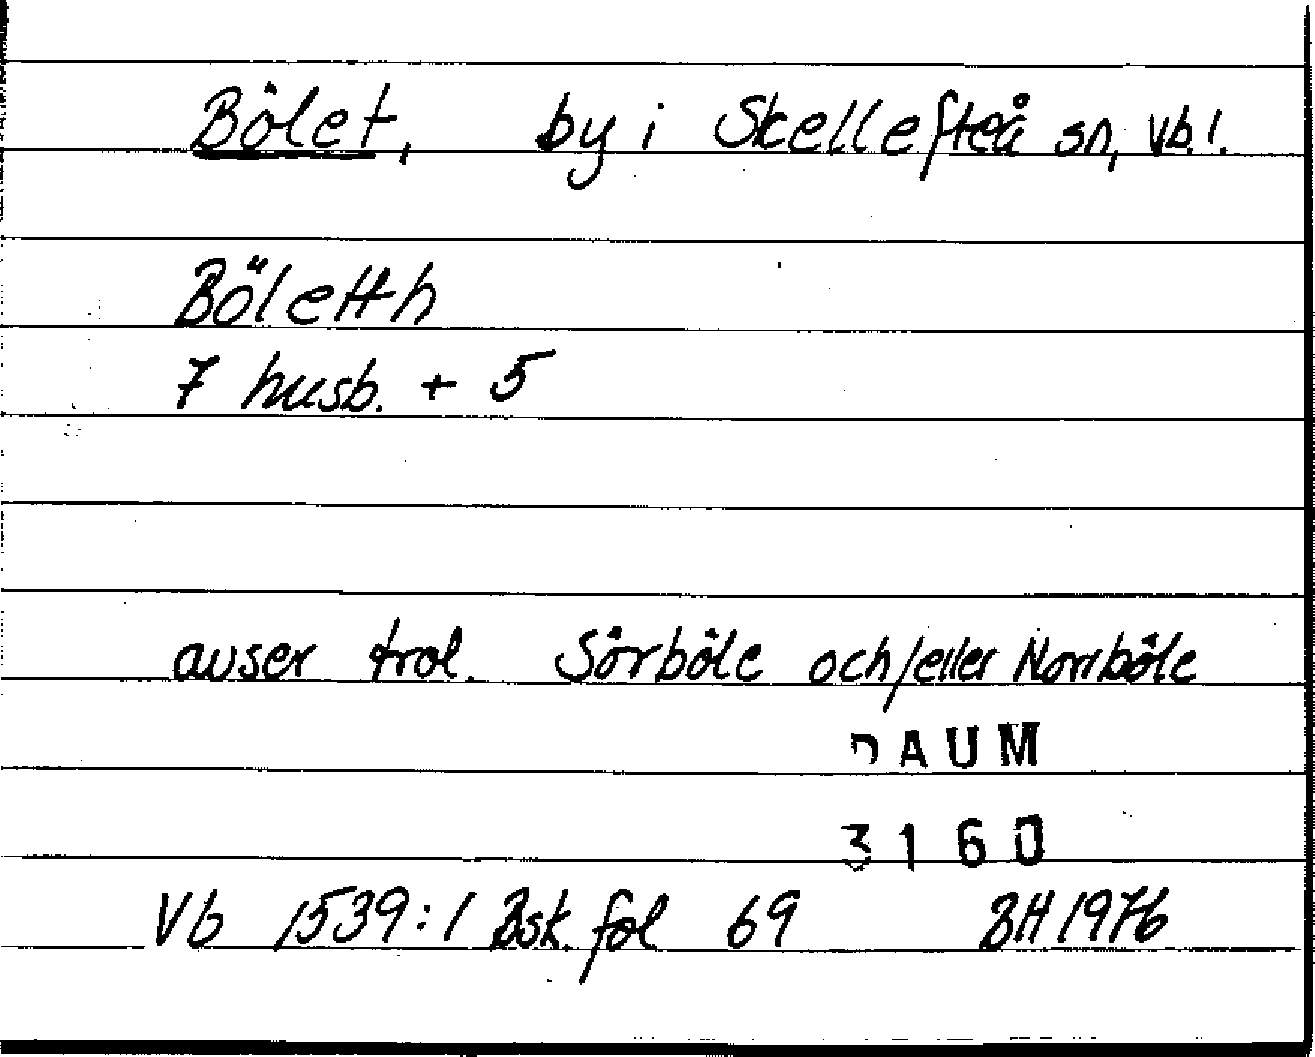 Bölet, by i Skellefteå sn, Vb. l.
Böletth
7 husb. + 5
avser trol. Sörböle och/eller Norrböle
DAUM
3160
Vb 1539:1 Bsk. fol 69 BH 1976